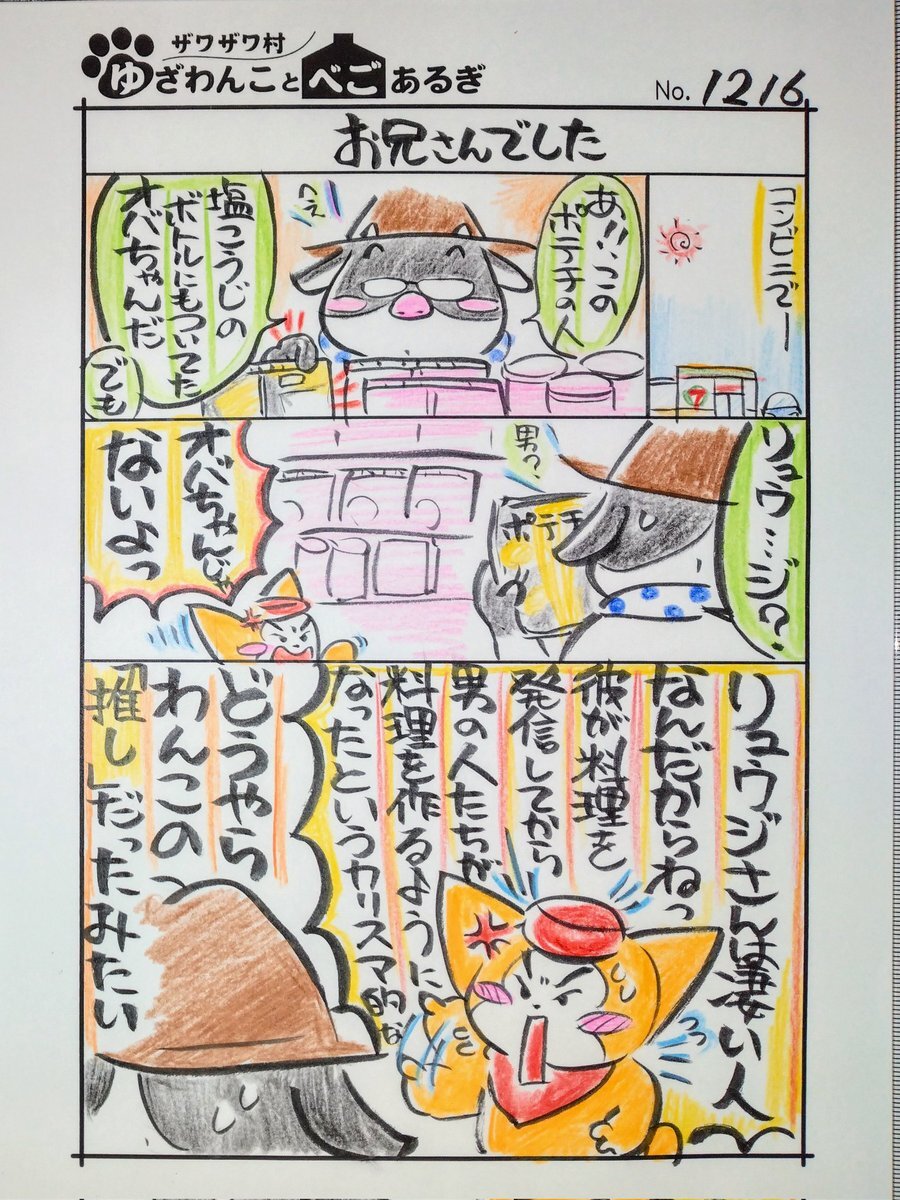 ザワザワ村
ゆざわんことべごあるぎ
No. 1216
お兄さんでした
コンビニで―
7
あ!!、この
ポテチの人
へえ
塩こうじの
ボトルにもついてた
オバちゃんだ
でも
リュウ…ジ?
男?
ポテチ
オバちゃんじゃ
ないよっ
リュウジさんは凄い人
なんだからねっ
彼が料理を
発信してから
男の人たちが
料理を作るように
なったというカリスマ的な
どうやら
わんこの
「推し」だったみたい